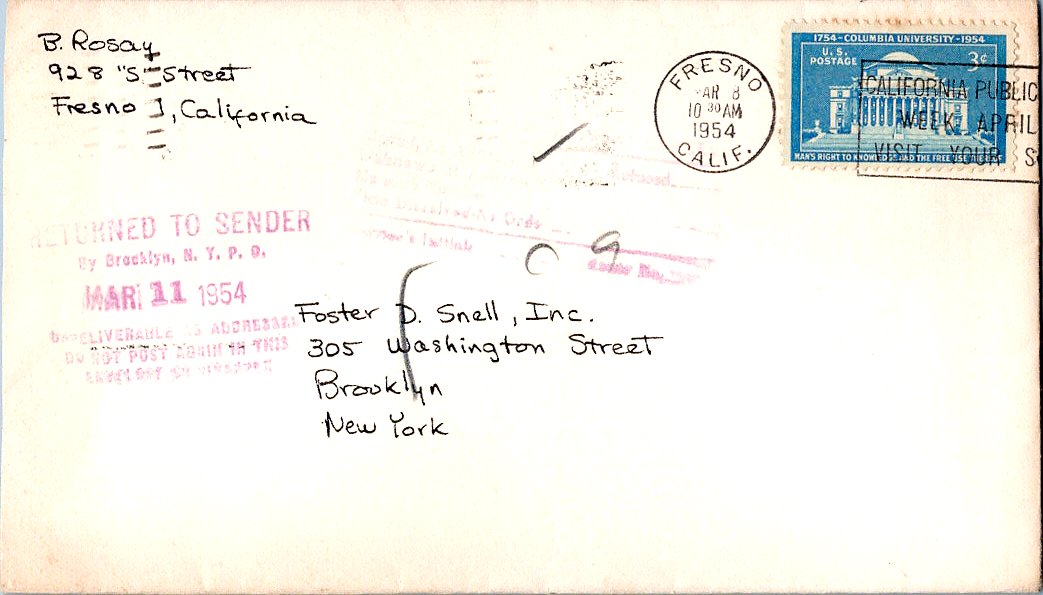 B. Rosay
928 "S" Street
Fresno 1, California
FRESNO
MAR 8
10 30 AM
1954
CALIF.
1754-COLUMBIA UNIVERSITY-1954
U.S. POSTAGE
3¢
MAN'S RIGHT TO KNOWLEDGE AND THE FREE USE THEREOF
CALIFORNIA PUBLIC
WEEK APRIL
VISIT YOUR S
Refused
RETURNED TO SENDER
By Brooklyn, N. Y. P. O.
MAR 11 1954
UNDELIVERABLE AS ADDRESSED
DO NOT POST AGAIN IN THIS
ENVELOPE OR WRAPPER
9
Foster D. Snell, Inc.
305 Washington Street
Brooklyn
New York